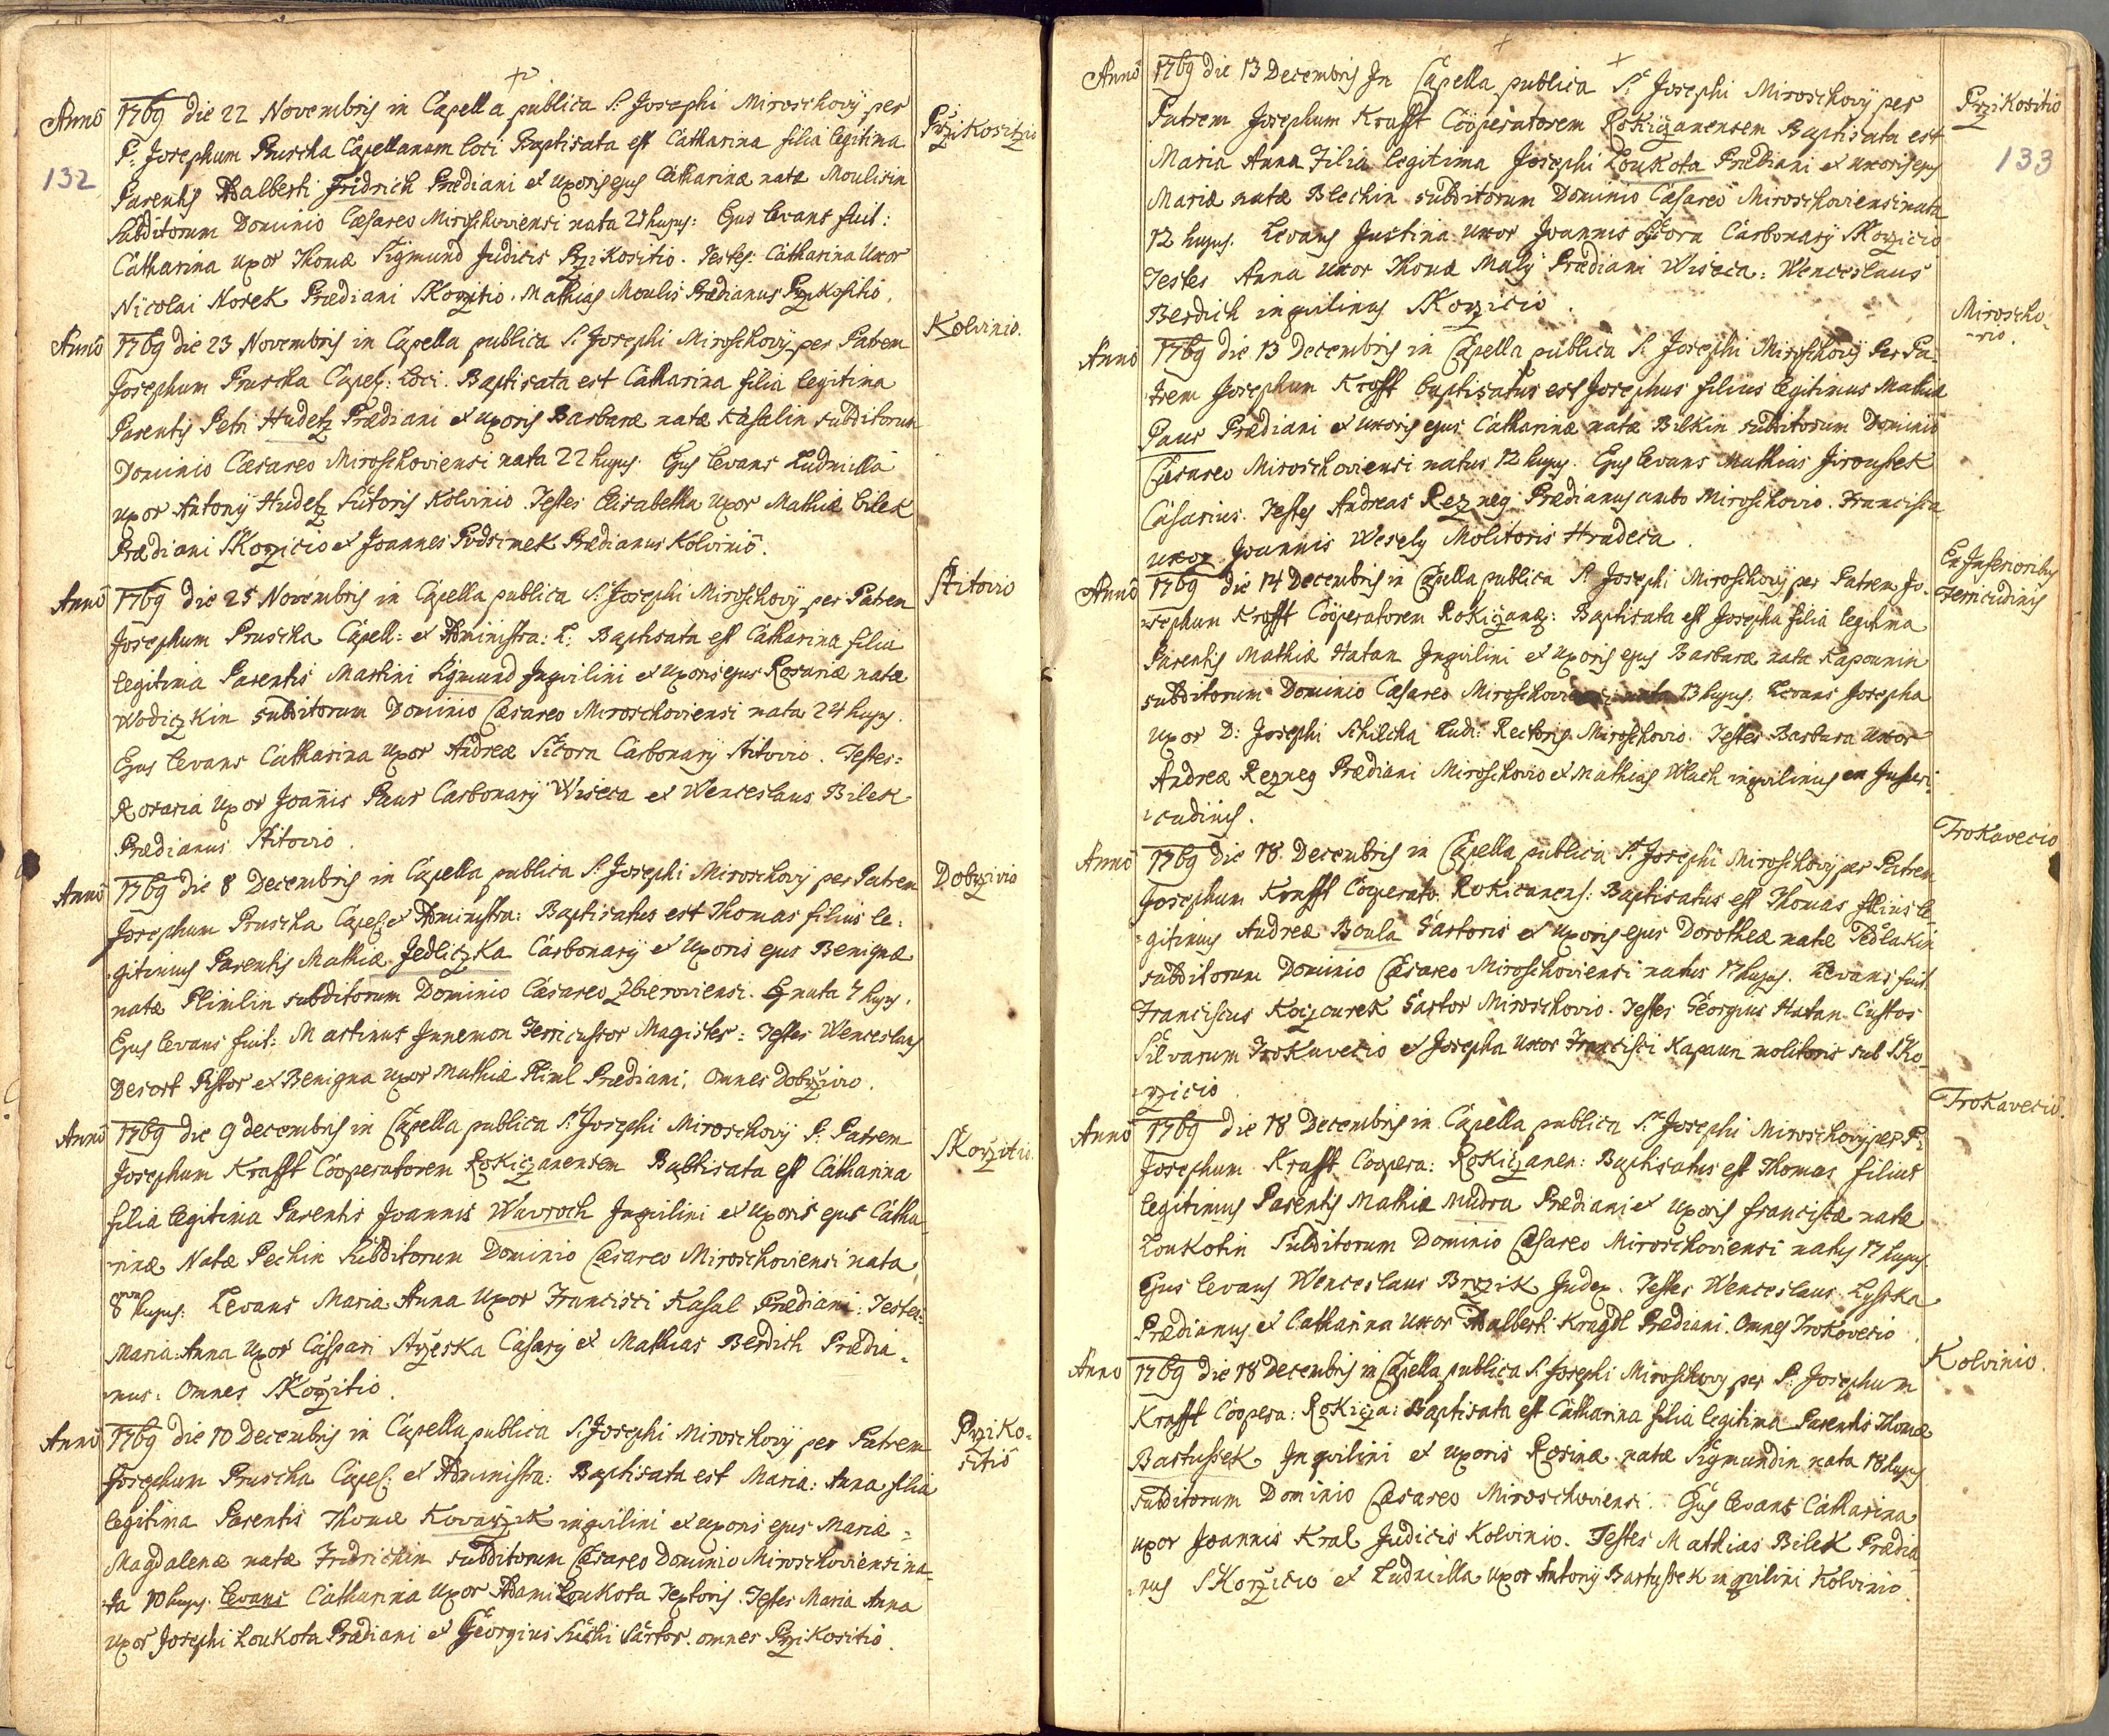 132
Anno 1769 die 22 Novembris in Capella publica S. Josephi Miroschovij per
Przikositio
P: Josephum Pruscha Capellanum loci Baptisata est Catharina filia legitima
Parentis Adalberti Fridrich Prædiani et Uxoris ejus Catharinæ natæ Moulisin
Subditorum Dominio Cæsareo Miroschoviensi nata 21 hujus: Ejus levans fuit:
Catharina uxor Thomæ Sigmund Judicis Przikositio. Testes: Catharina Uxor
Nicolai Nosek Prædiani Skorzitio. Mathias Moulis Prædianus Przikositio.
Anno 1769 die 23 Novembris in Capella publica S. Josephi Miroschovij per Patrem
Kolvinio.
Josephum Pruscha Capel: Loci. Baptisata est Catharina filia legitima
Parentis Petri Hudetz Prædiani et uxoris Barbaræ natæ Kasalin subditorum
Dominio Cæsareo Miroschoviensi nata 22 hujus. Ejus levans Ludmilla
uxor Antonij Hudetz Sutoris Kolvinio Testes Elisabetha uxor Mathiæ bilek
Prædiani Skorzicio et Joannes Podzimek Prædianus Kolvinio.
Anno 1769 die 25 Novembris in Capella publica S. Josephi Miroschovij per Patrem
Stitovio
Josephum Pruscha Capell: et Administra: L: Baptisata est Catharina filia
legitima Parentis Martini Sigmund Inqvilini et Uxoris ejus Rosariæ natæ
Wodiczkin subditorum Dominio Cæsareo Miroschoviensi nata 24 hujus.
Ejus levans Catharina Uxor Andreæ Sicora Carbonarij Stitovio. Testes:
Rosaria Uxor Joannis Paur Carbonarij Wiseca et Wenceslaus Bilek
Prædianus Stitovio.
Anno 1769 die 8 Decembris in Capella publica S. Josephi Miroschovij per Patrem
Dobrzivio
Josephum Pruscha Capel: et Administra: Baptisatus est Thomas filius le-
gitimus Parentis Mathiæ Jedliczka Carbonarij et Uxoris ejus Benignæ
natæ Plimlin subditorum Dominio Cæsareo Zbieroviensi. nata 7 hujus.
Ejus levans fuit: Martinus Innemon Ferricussor Magister: Testes Wenceslaus
Desort Pistor et Benigna uxor Mathiæ Pliml Prædiani, omnes Dobrzivio.
Anno 1769 die 9 decembris in Capella publica S. Josephi Miroschovij P. Patrem
Skorzitio.
Josephum Krafft Cooperatorem Rokiczanensem Babtisata est Catharina
filia legitima Parentis Joannis Wavroch Inqvilini et Uxoris ejus Catha
rinæ Natæ Pechin Subditorum Dominio Cæsareo Miroschoviensi nata
8 hujus: Levans Maria Anna Uxor Francisci Kasal Prædiani: Testes:
Maria Anna Uxor Caspari Casarij et Mathias Berdich Prædia-
nus. Omnes Skorzitio.
Anno 1769 die 10 Decembris in Capella publica S. Josephi Miroschovij per Patrem
Prziko-
sitio
Josephum Pruscha Capel: et Administra: Baptisata est Maria: Anna filia
legitima Parentis Thomæ Kovarzik inqvilini et uxoris ejus Mariæ-
Magdalenæ natæ Fridrichin subditorum Cæsareo Dominio Miroschoviensi na-
ta 10 hujus. levans Catharina Uxor Adami Loukota Textoris. Testes Maria Anna
uxor Josephi Loukota Prædiani et Georgius Suchi Sartor. omnes Przikositio.
Anno 1769 die 13 Decembris In Capella publica S. Josephi Miroschovij per
Przikositio
133
Patrem Josephum Krafft Cooperatorem Rokiczanensem Baptisata est
Maria Anna Filia legitima Josephi Loukota Prædiani et uxoris ejus
Mariæ natæ Blechin subditorum Dominio Cæsareo Miroschoviensi nata
12 hujus. Levans Justina uxor Joannis Carbonarij Skorzicio
Testes Anna uxor Thomæ Malý Prædiani Wiseca: Wenceslaus
Berdich inqvilinus Skorzicio.
Anno 1769 die 13 Decembris in Capella publica S. Josephi Miroschovij Per Pa-
Miroscho-
vio.
trem Josephum Krafft baptisatus est Josephus filius legitimus Mathiæ
Paur Prædiani et uxoris ejus Catharinæ natæ Bilkin subditorum Dominio
Cæsareo Miroschoviensi natus 12 hujus. Ejus levans Mathias Jiroussek
Casarius. Testes Andreas Rezneg Prædianus ambo Miroschovio. Francisca
uxor Joannis Wesely Molitoris Hradeca.
Anno 1769 die 14 Decembris in Capella publica S. Josephi Miroschovij per Patrem Jo-
Ex Inferioribus
Ferricudinis
sephum Krafft Cooperatorem Rokiczane: Baptisata est Josepha filia legitima
Parentis Mathiæ Hatan Inqvilini et uxoris ejus Barbaræ nata Kapounin
subditorum Dominio Cæsareo Miroschoviensi nata 13 hujus. Levans Josepha
Uxor D: Josephi Schilcha Ludi: Rectoris Miroschovio. Testes Barbara Uxor
Andreæ Rezneg Prædiani Miroschovio et Mathias Wlach inqvilinus ex Inferi:
cudinis.
Anno 1769 die 18 Decembris in Capella publica S. Josephi Miroschovij per Patrem
Trokavecio
Josephum Krafft Cooperato. Rokicanens: Baptisatus est Thomas filius le-
gitimus Andreæ Boula Sartoris et Uxoris ejus Dorotheæ natæ Sedlakin
subditorum Dominio Cæsareo Miroschoviensi natus 17 hujus. Levans fuit
Franciscus Sartor Miroschovio. Testes Georgius Hatan Custos
Silvarum Trokavecio et Josepha Uxor Francisci Kapaun molitoris sub Sko-
rzicio
Anno 1769 die 18 Decembris in Capella publica S. Josephi Miroschovij per P:
Trokavecio.
Josephum Krafft Coopera: Rokiczanen: Baptisatus est Thomas filius
legitimus Parentis Mathiæ Mudra Prædiani et Uxoris franciscæ natæ
Loukotin Subditorum Dominio Cæsareo Miroschoviensi natus 17 hujus.
Ejus levans Wenceslaus Brozik Judex. Testes Wenceslaus Lyska
Prædianus et Catharina Uxor Adalberti Prædiani. Omnes Trokovecio.
Anno 1769 die 18 Decembris in Capella publica S. Josephi Miroschovij per P. Josephum
Kolvinio.
Krafft Coopera: Rokicza: Baptisata est Catharina filia legitima Parentis Thomæ
Bartussek Inqvilini et uxoris Rosinæ natæ Sigmundin nata 18 hujus
subditorum Dominio Cæsareo Miroschoviensi. Ejus levans Catharina
uxor Joannis Kral Judicis Kolvinio. Testes Mathias Bilek Prædia
nus Skorzicio et Ludmilla uxor Antonij Bartussek inqvilini Kolvinio.